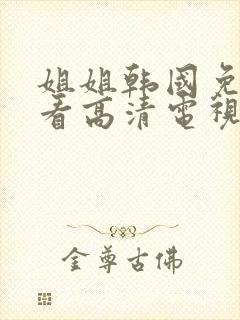 姐姐韩國免
看高清電視
金尊古佛